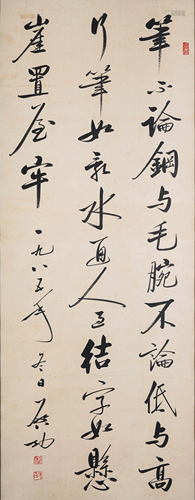 筆不論鋼与毛腕不論低与高
行筆如亂水通人過結字如懸
崖置屋牢 一九八五年冬日 启功